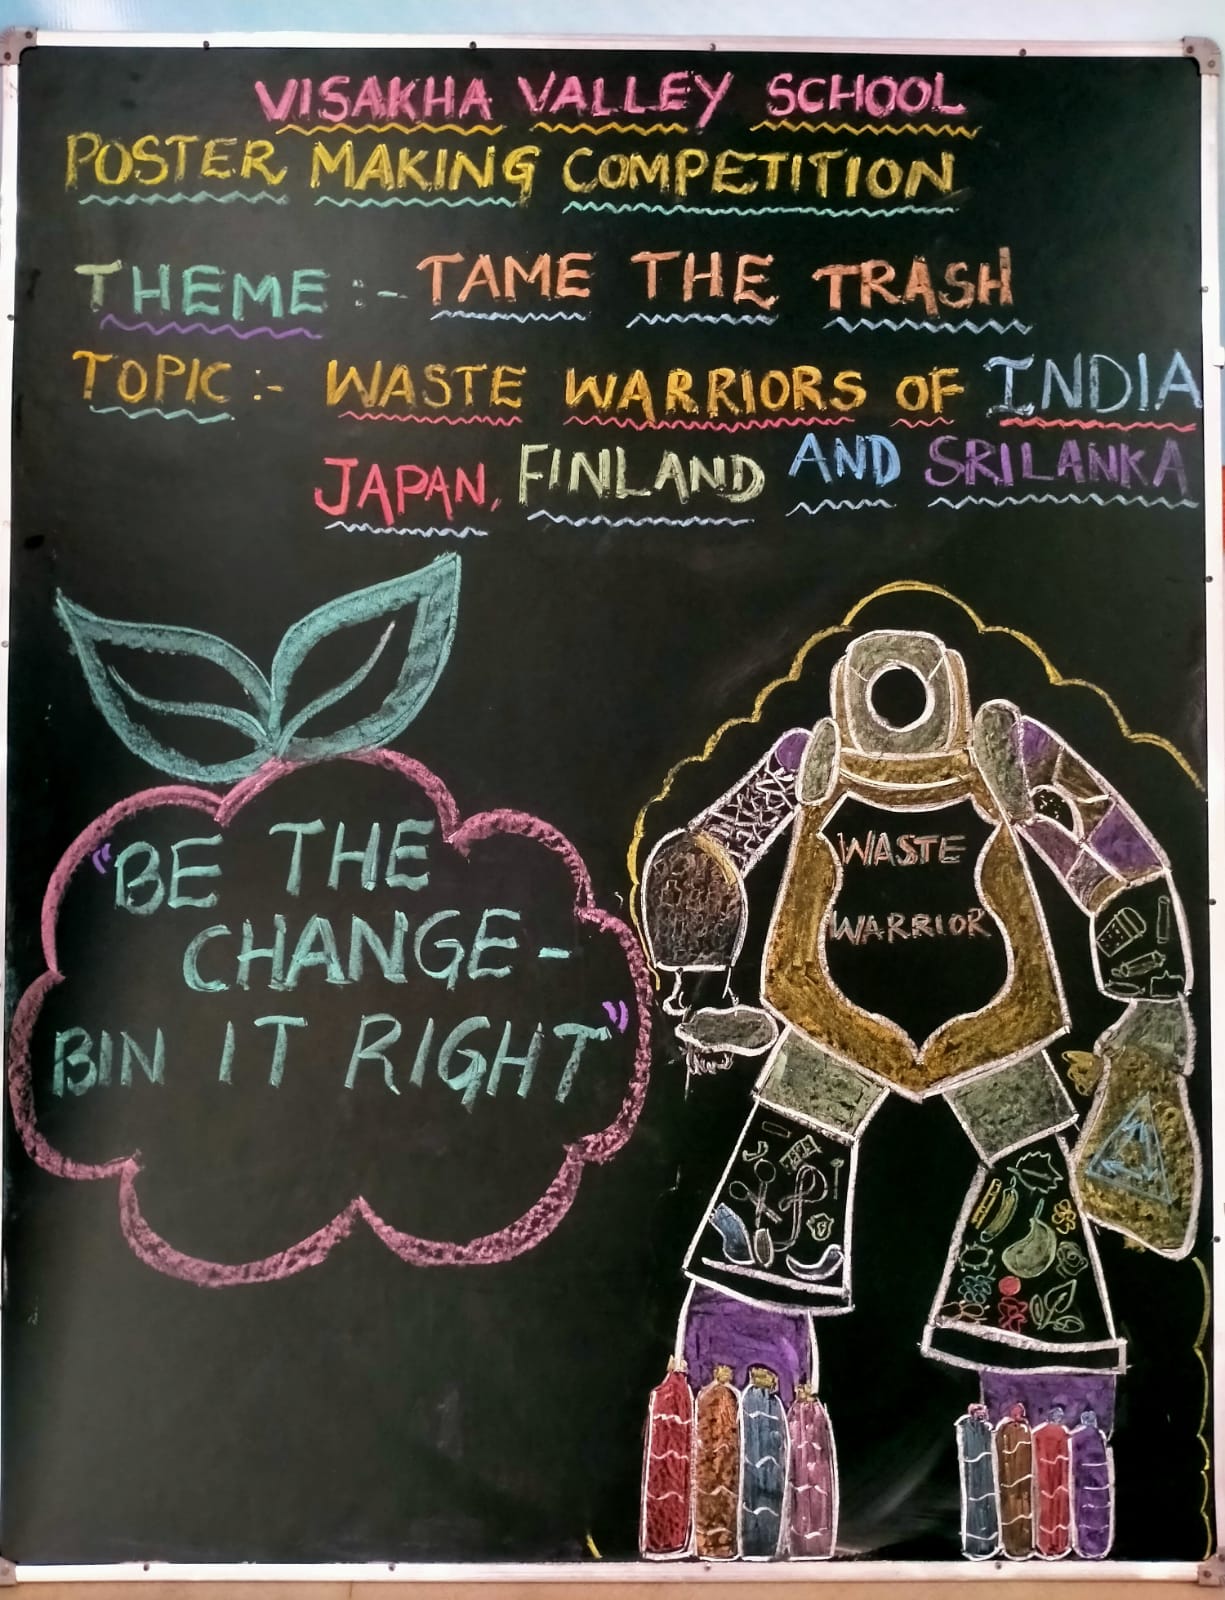 VISAKHA VALLEY SCHOOL
POSTER MAKING COMPETITION
THEME :- TAME THE TRASH
TOPIC :- WASTE WARRIORS OF INDIA
JAPAN, FINLAND AND SRILANKA
"BE THE
CHANGE -
BIN IT RIGHT"
WASTE
WARRIOR